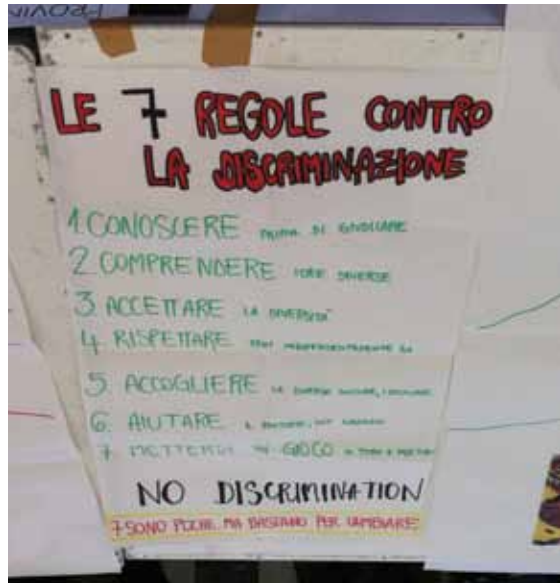 LE 7 REGOLE CONTRO
LA DISCRIMINAZIONE
1. CONOSCERE PRIMA DI GIUDICARE
2 COMPRENDERE IDEE DIVERSE
3 ACCETTARE LA DIVERSITÀ
4 RISPETTARE
5 ACCOGLIERE
6 AIUTARE
7 METTERSI IN GIOCO
NO DISCRIMINATION
7 SONO POCHE, MA BASTANO PER CAMBIARE